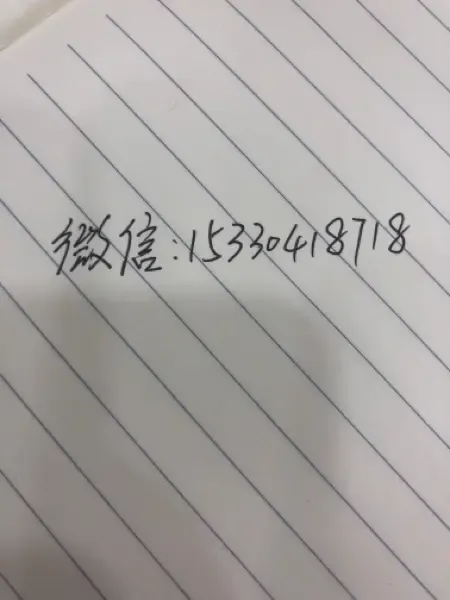 微信:15330418718